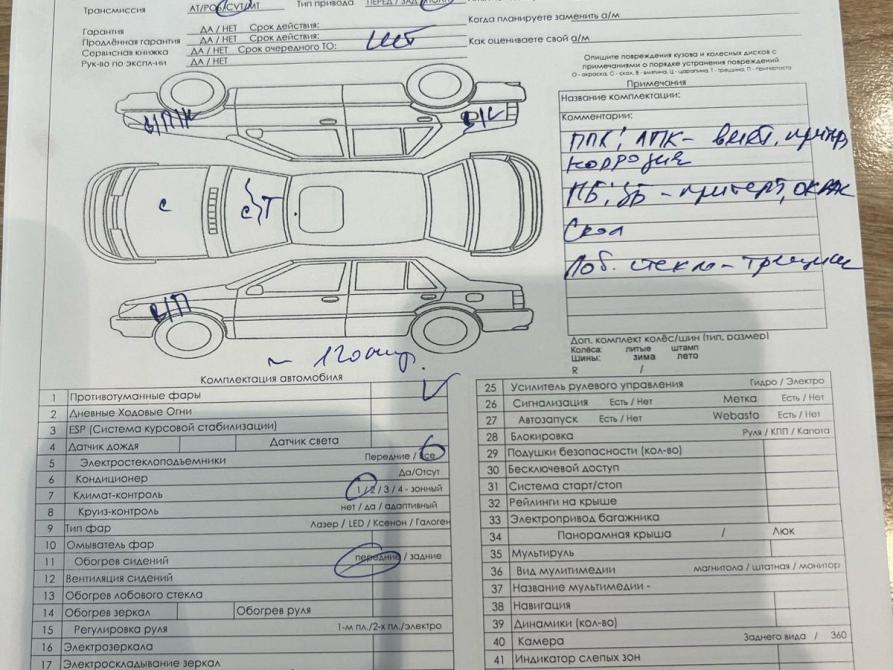 Трансмиссия АТ/РОБ/CVT/МТ Тип привода ПЕРЕД / ЗАД / ПОЛН
Гарантия ДА / НЕТ Срок действия:
Продлённая гарантия ДА / НЕТ Срок действия:
Сервисная книжка ДА / НЕТ Срок очередного ТО:
Рук-во по экспл-ии ДА / НЕТ
нет
Когда планируете заменить а/м
Как оцениваете свой а/м
Опишите повреждения кузова и колесных дисков с
примечаниями о порядке устранения повреждений
О - окраска, С - скол, В - вмятина, Ц - царапина, Т - трещина, П - притертость
Примечания
Название комплектации:
Комментарии:
ППК; ЛПК - вмят, притер,
коррозия
ПБ; ЗБ - притерт, окрас
Скол
Лоб. стекло - трещина
В/П/К
С
С Т
В/П
~ 120
Доп. комплект колёс/шин (тип, размер)
Колёса: литые штамп
Шины: зима лето
R /
Комплектация автомобиля
1 Противотуманные фары
2 Дневные Ходовые Огни
3 ESP (Система курсовой стабилизации)
4 Датчик дождя Датчик света
5 Электростеклоподъемники Передние / Все
6 Кондиционер Да/Отсут
7 Климат-контроль 1 / 2 / 3 / 4 - зонный
8 Круиз-контроль нет / да / адаптивный
9 Тип фар Лазер / LED / Ксенон / Галоген
10 Омыватель фар
11 Обогрев сидений передние / задние
12 Вентиляция сидений
13 Обогрев лобового стекла
14 Обогрев зеркал Обогрев руля
15 Регулировка руля 1-м пл./2-х пл./электро
16 Электрозеркала
17 Электроскладывание зеркал
25 Усилитель рулевого управления Гидро / Электро
26 Сигнализация Есть / Нет Метка Есть / Нет
27 Автозапуск Есть / Нет Webasto Есть / Нет
28 Блокировка Руля / КПП / Капота
29 Подушки безопасности (кол-во)
30 Бесключевой доступ
31 Система старт/стоп
32 Рейлинги на крыше
33 Электропривод багажника
34 Панорамная крыша / Люк
35 Мультируль
36 Вид мулитимедии магнитола / штатная / монитор
37 Название мультимедии -
38 Навигация
39 Динамики (кол-во)
40 Камера Заднего вида / 360
41 Индикатор слепых зон